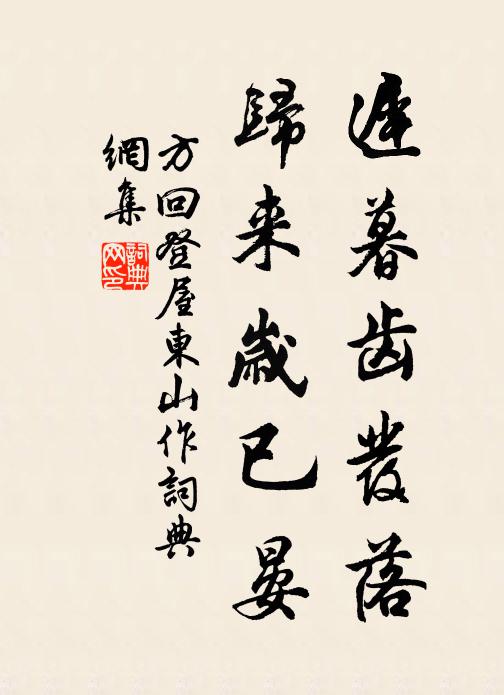 遲暮齿發落
歸来歲已晏
方回登屋東山作詞典
網集
詞典
网印